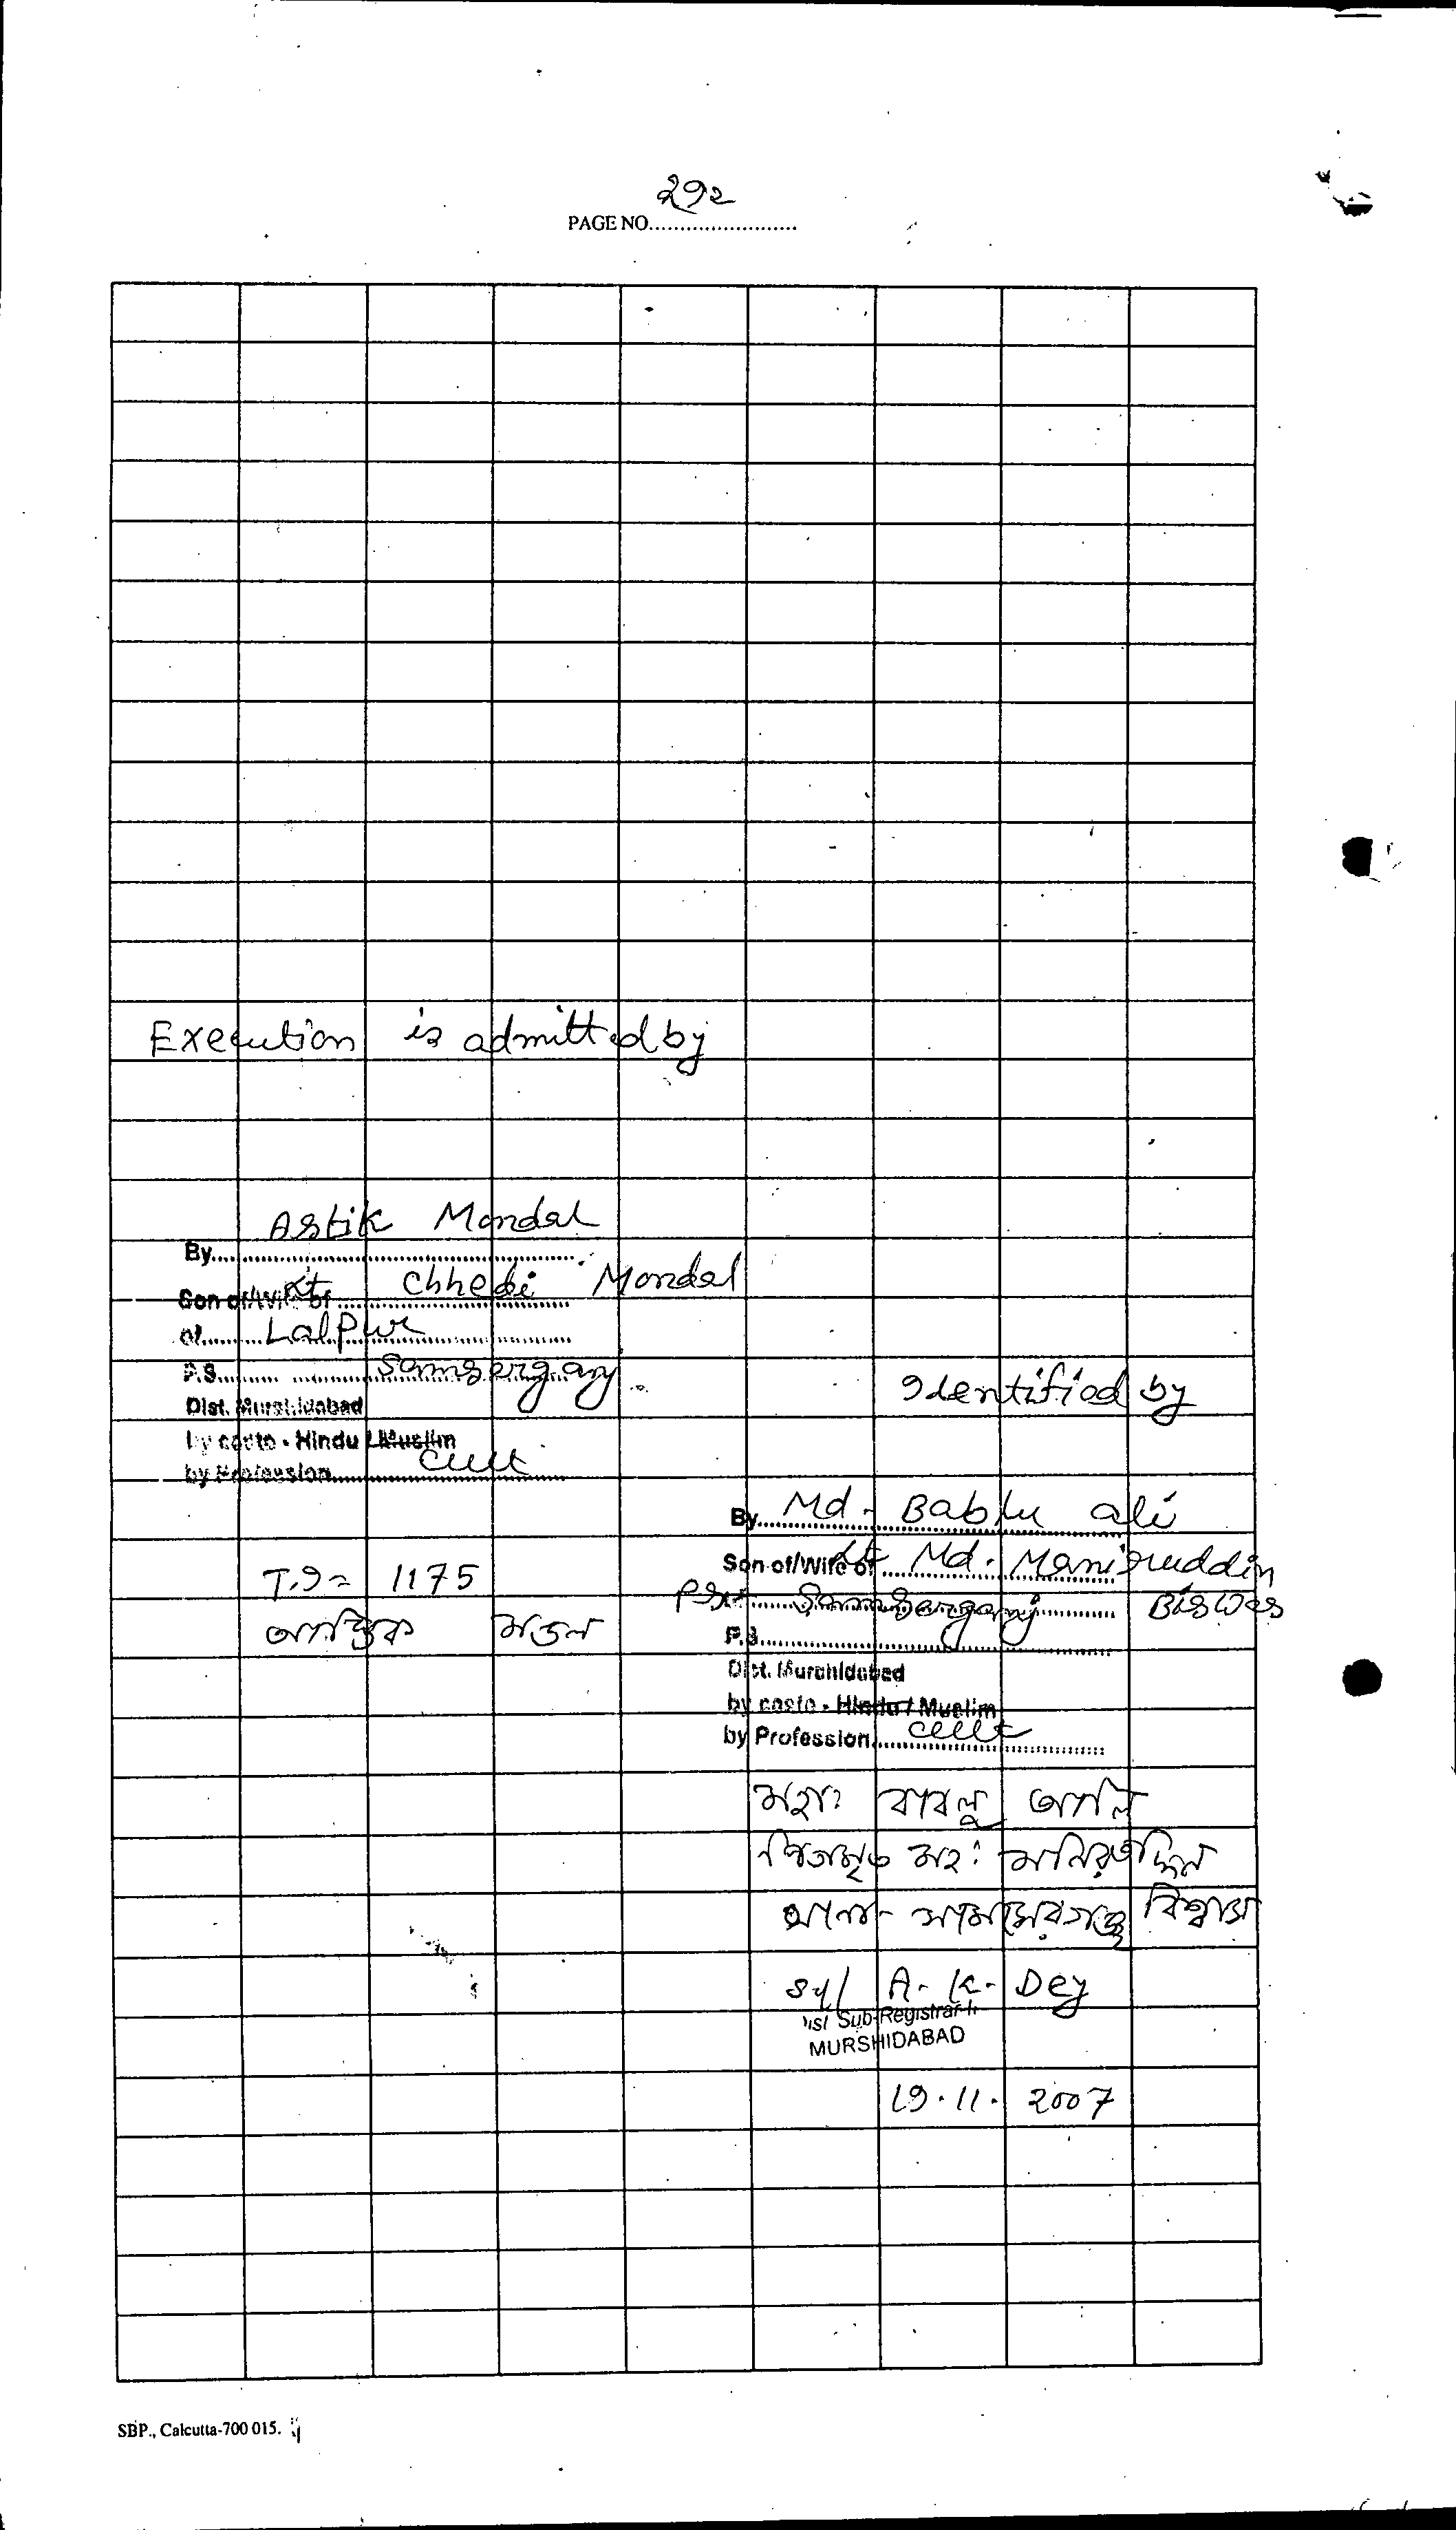 292
PAGE NO.........................
Execution is admitted by
Astik Mondal
By........................................................
Son of/Wife of Lt Chhedi Mondal
of.......... Lalpur
P.S......... Samserganj.
Dist. Murshidabad
by caste - Hindu / Muslim
by Profession........ Cult
T.I= 1175
আস্তিক মন্ডল
Identified by
By..... Md. Bablu Ali
Son of/Wife of Lt Md. Maniruddin
PS Samserganj Biswas
P.S.........................................
Dist. Murshidabad
by caste - Hindu / Muslim
by Profession..... Cult
মহাঃ বাবলু আলি
পিতামৃত মহঃ মনিরউদ্দিন
থানা- সামসেরগঞ্জ বিশ্বাস
Sd/ A. K. Dey
Dist Sub-Registrar-I
MURSHIDABAD
19.11.2007
SBP., Calcutta-700 015.